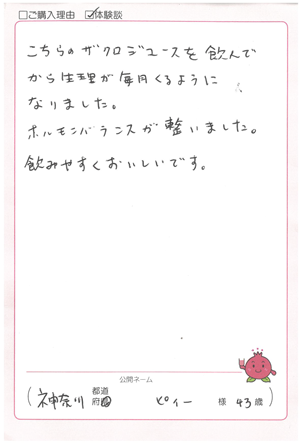 □ご購入理由 ☑体験談
こちらのザクロジュースを飲んで
から生理が毎月くるように
なりました。
ホルモンバランスが整いました。
飲みやすくおいしいです。
公開ネーム
(神奈川 都道府県 ピィー 様 43歳)